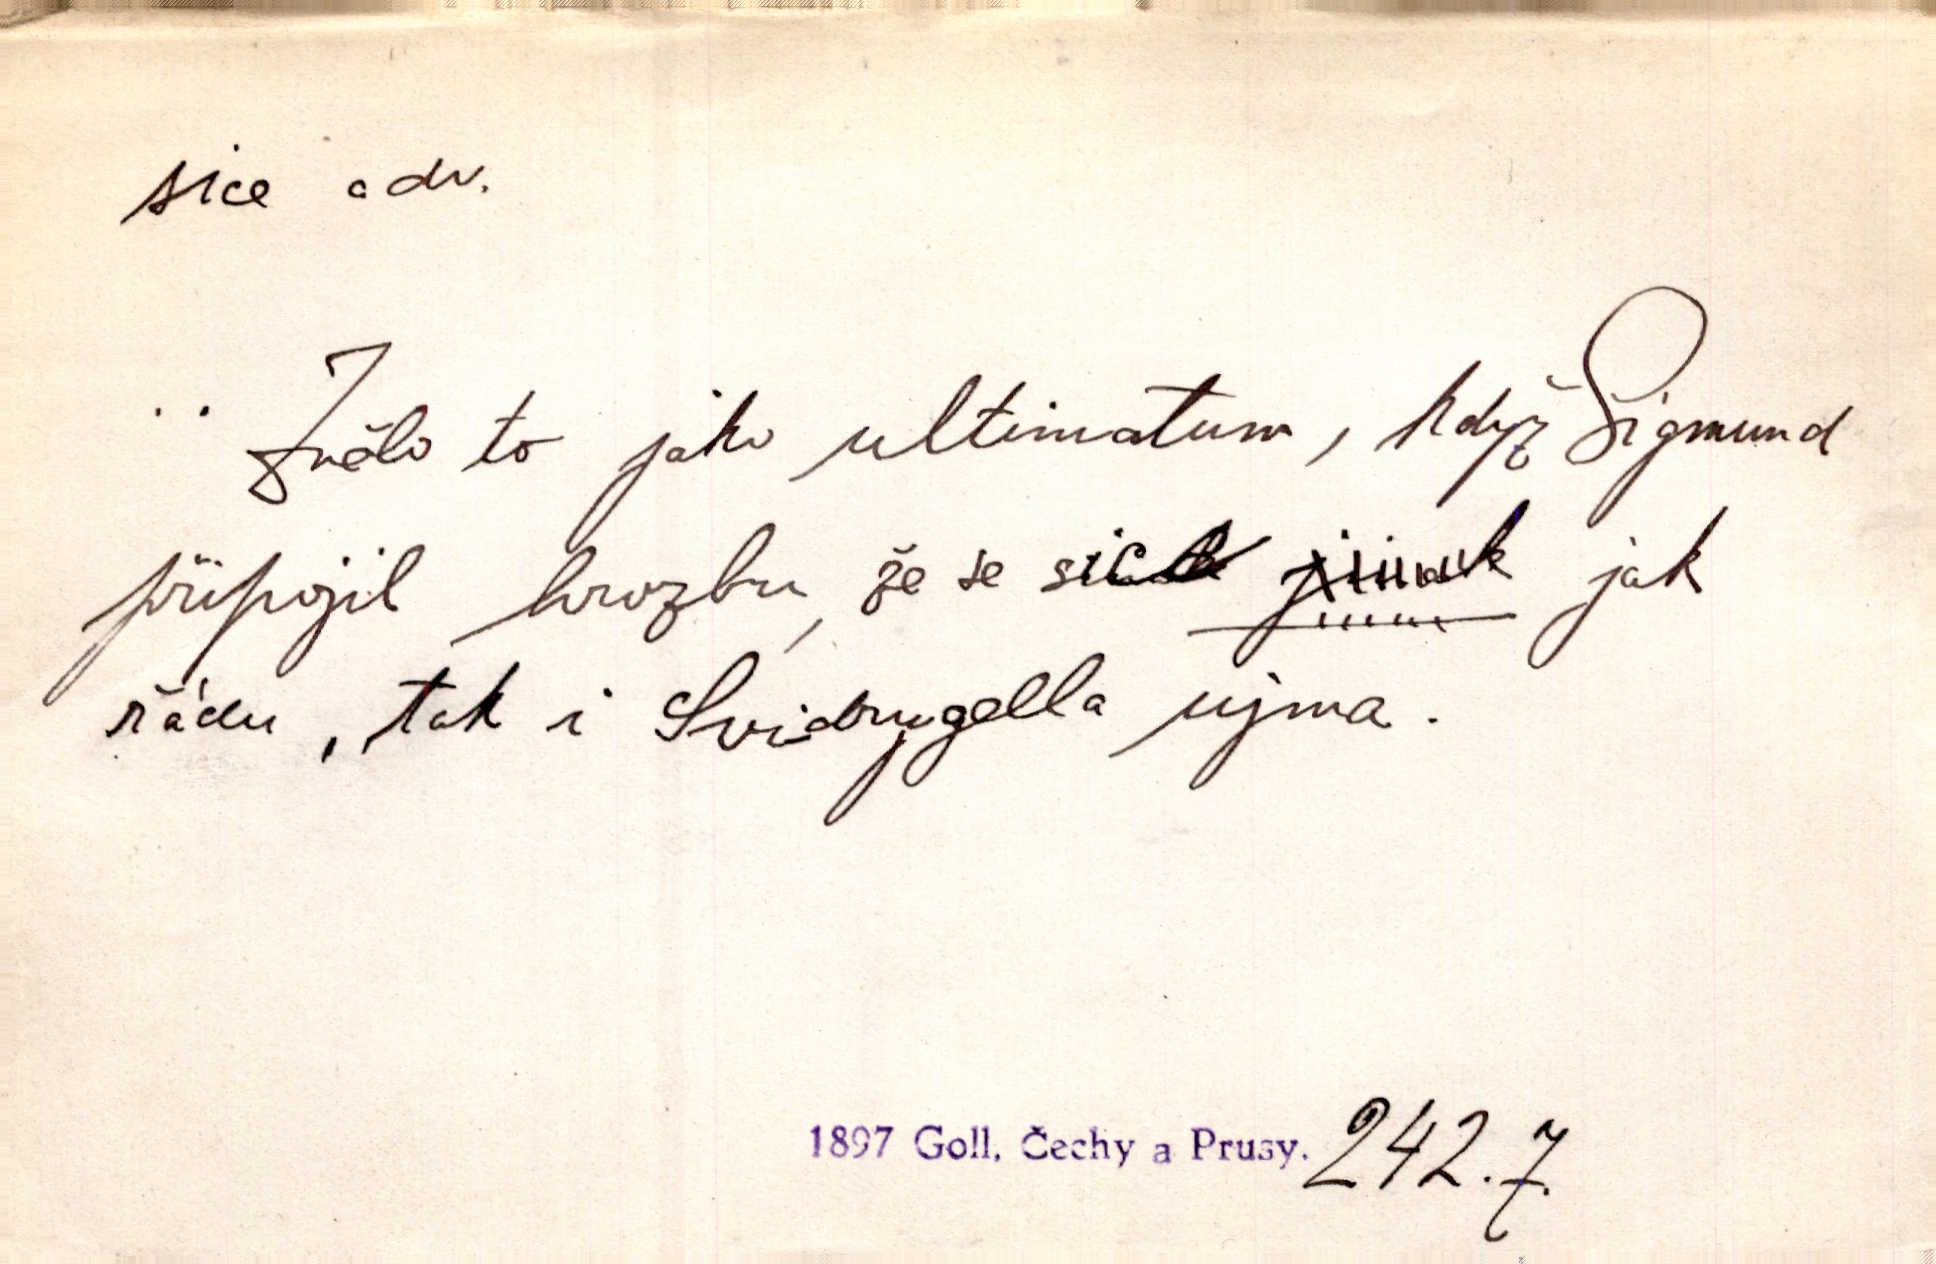 sice adv.
.. Znělo to jako ultimatum, když Sigmund
připojil hrozbu, že se sice jinak jak
řádu, tak i Svidrygella ujma.
1897 Goll, Čechy a Prusy. 242.7.